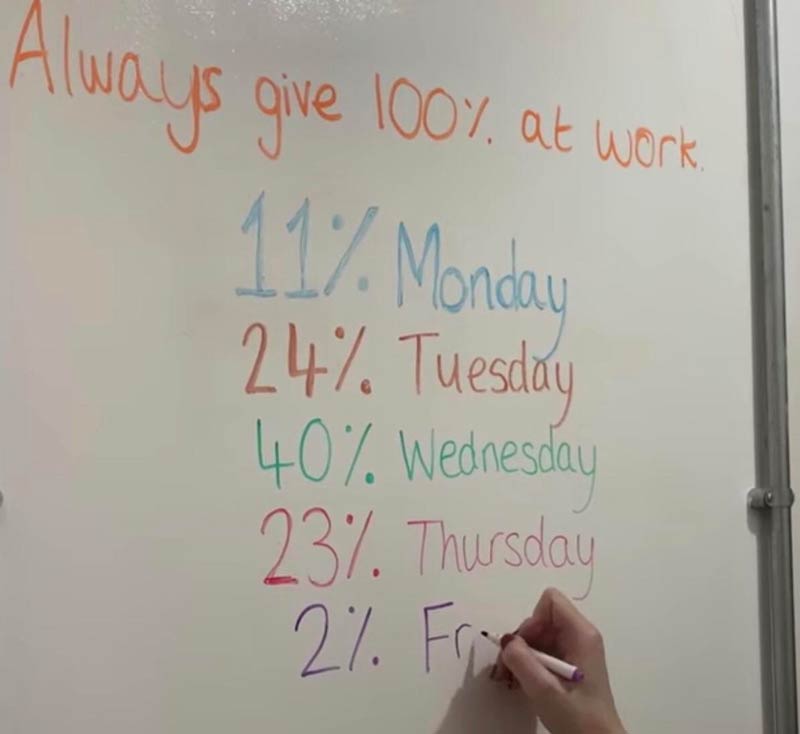 Always give 100% at work.
11% Monday
24% Tuesday
40% Wednesday
23% Thursday
2% Fr